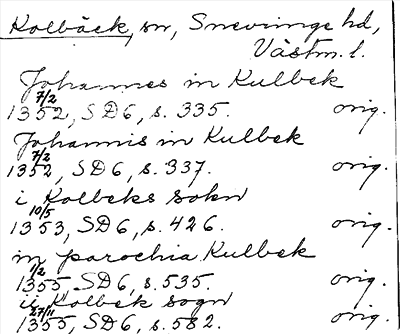 Kolbäck, sn, Snevringe hd,
Västm. l.
Johannes in Kulbek
7/2
1352, SD6, s. 335. orig.
Johannis in Kulbek
7/2
1352, SD6, s. 337. orig.
i Kolbeks sokn
10/5
1353, SD6, s. 426. orig.
in parochia Kulbek
1/2
1355, SD6, s. 535. orig.
ij Kolbek sogn
27/11
1355, SD6, s. 582. orig.